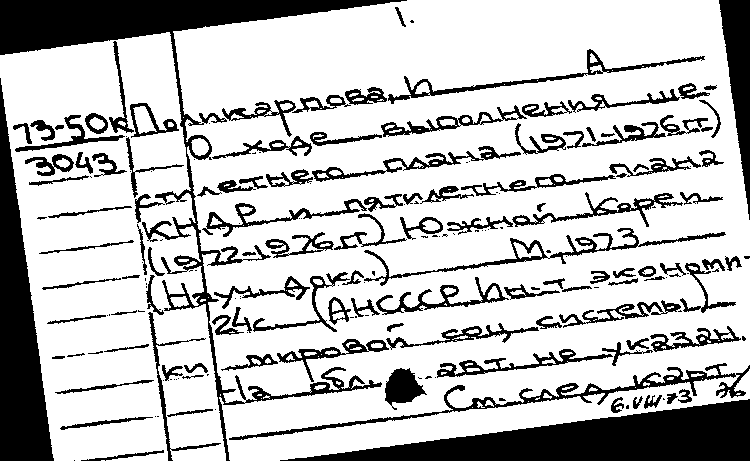 1.
А
73-50к Поликарпова, И
3043 О ходе выполнения ше-
стилетнего плана (1971-1976гг)
КНДР и пятилетнего плана
(1972-1976гг) Южной Кореи
(Науч. докл.) М., 1973
24с. (АНСССР Ин-т экономи-
ки мировой соц. системы)
На обл. авт. не указан.
См. след. карт.
6.VIII.73